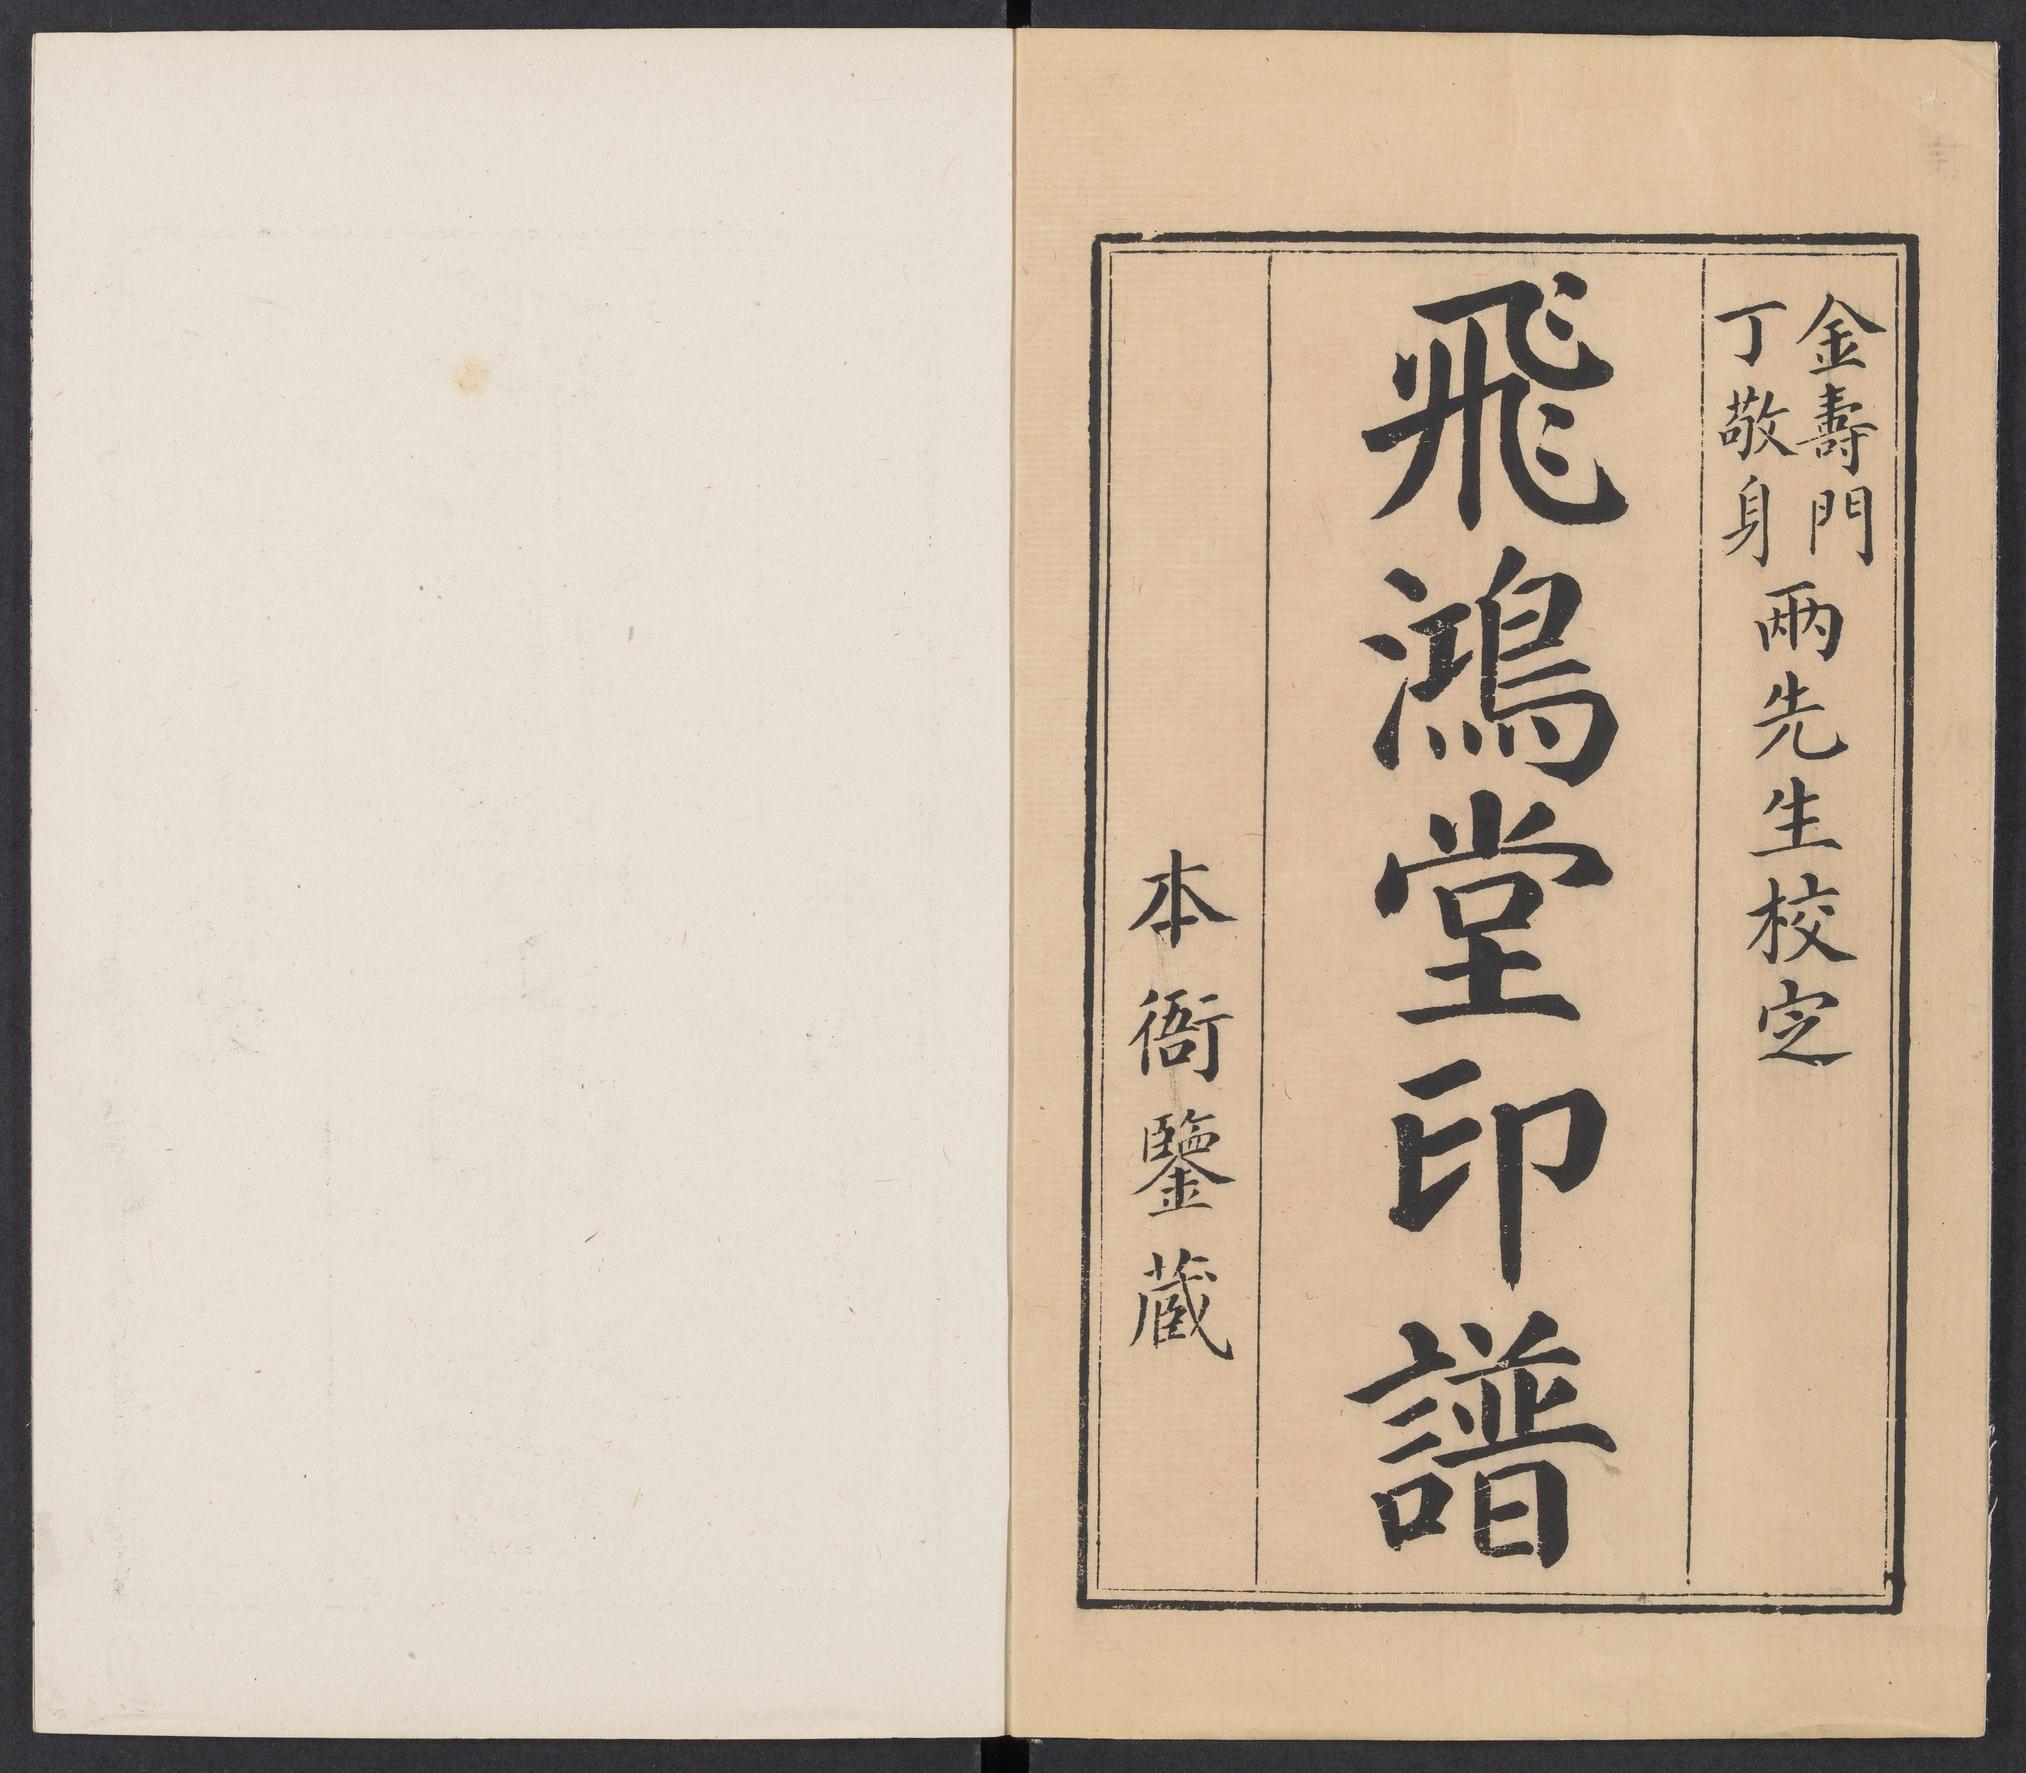 金壽門
丁敬身
兩先生校定
飛鴻堂印譜
本衙鑒藏